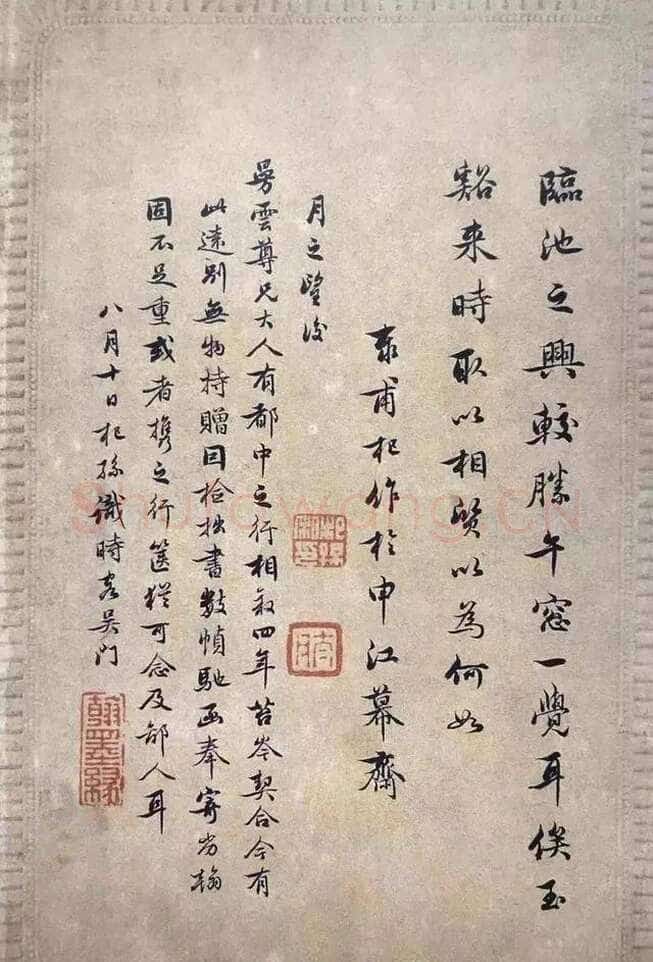 臨池之興較勝午窓一覺耳俟玉
谿来時取以相質以為何如
泰甫杞作於申江幕齋
月之望後
曼雲尊兄大人有都中之行相叙四年苔岑契合今有
此遠别無物持贈因檢拙書數幀馳函奉寄劣翰
固不足重或者携之行篋猶可念及鄙人耳
八月十日杞孫識時客吳門
翰墨緣
Shufawang.CN